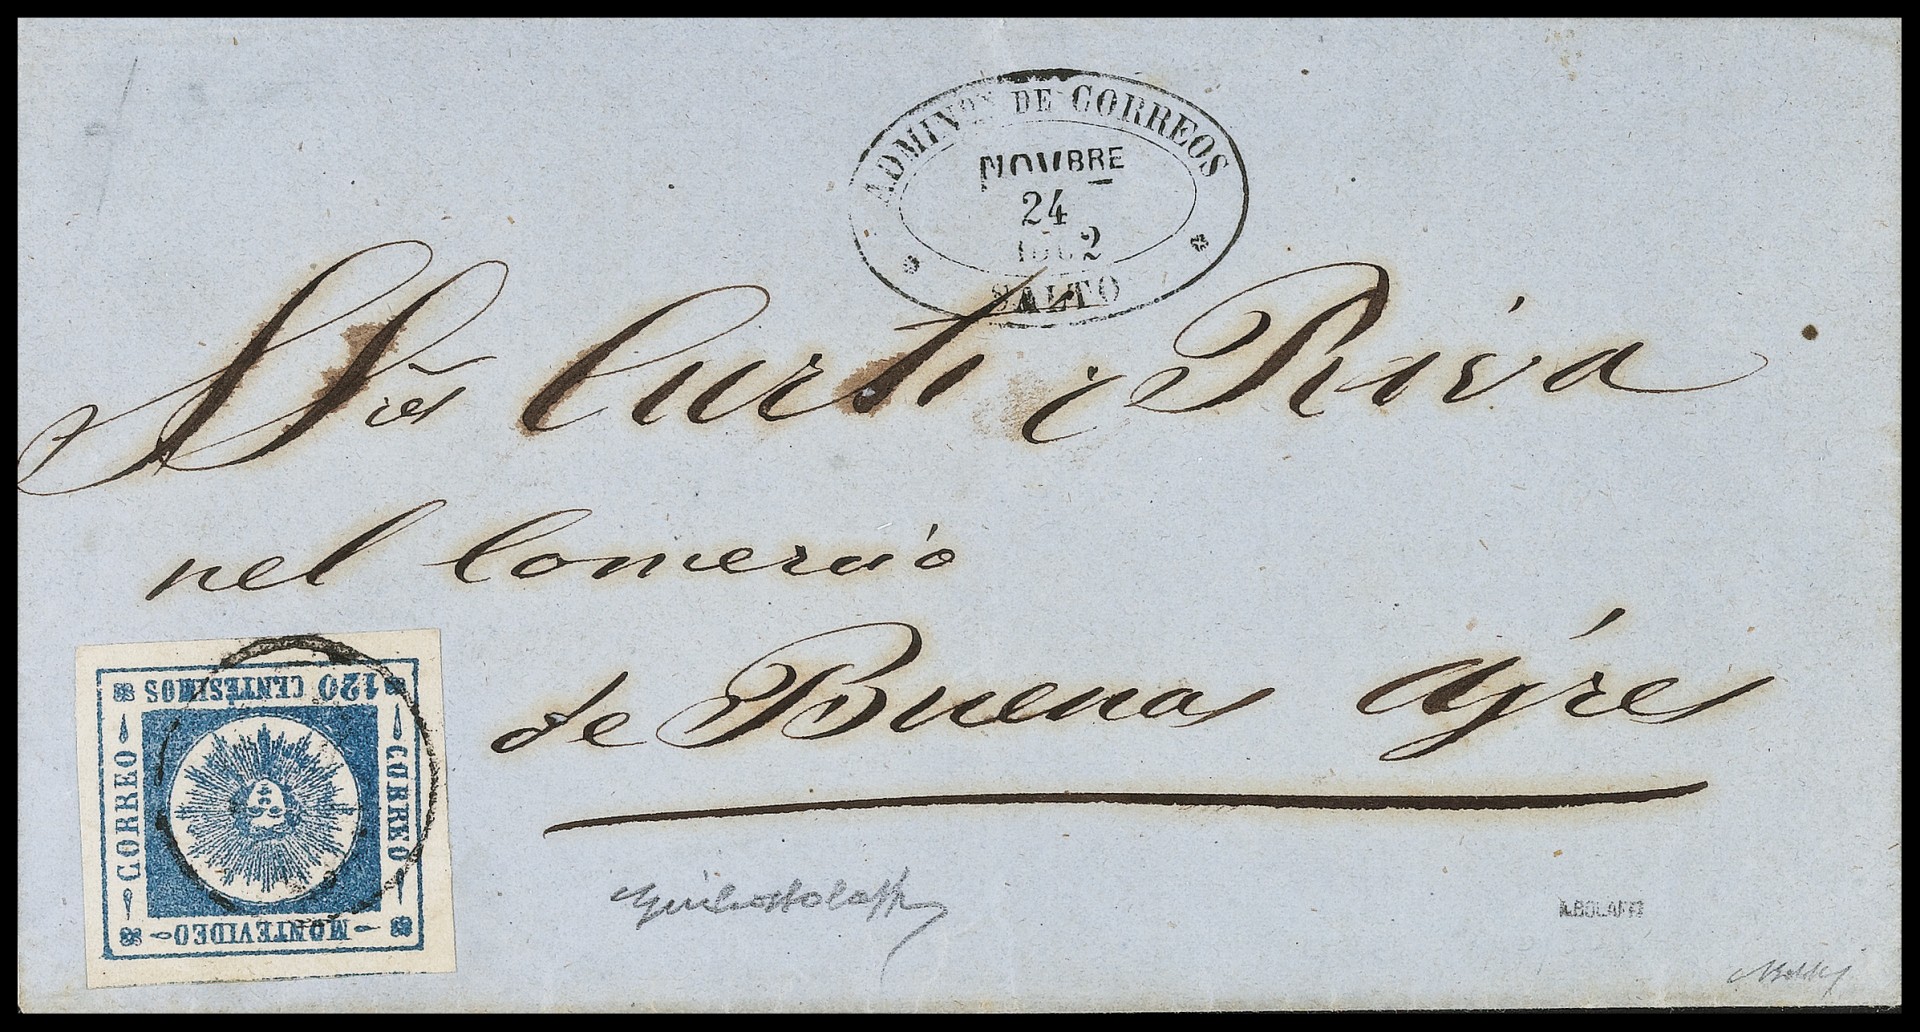 ADMINON DE CORREOS
NOVBRE
24
1862
SALTO
SSres Curti i Riva
nel Comercio
de Buenos Ayres
120 CENTESIMOS
CORREO
CORREO
MONTEVIDEO
A.BOLAFFI